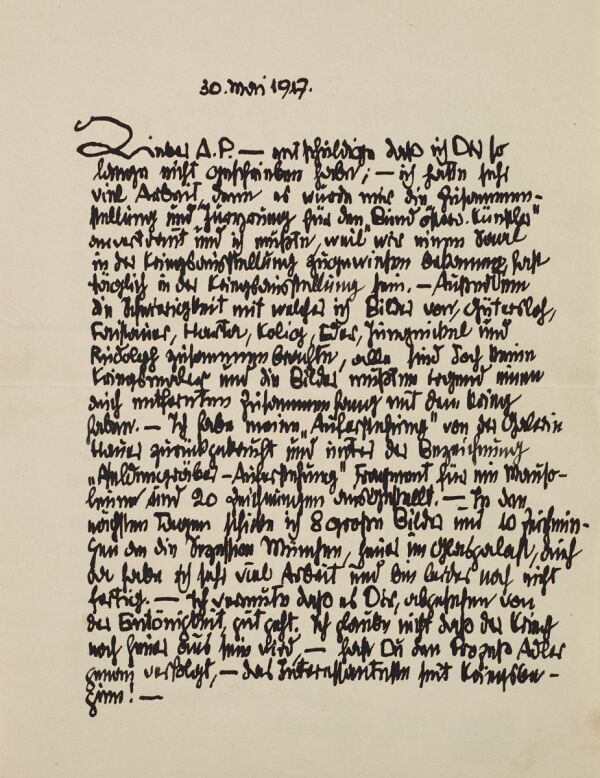 30. Mai 1917.
Lieber A.P. — entschuldige daß ich Dir so
lange nicht geschrieben habe; — ich hatte sehr
viel Arbeit denn es wurde mir die Zusammen-
stellung und Jurierung für den „Bund österr. Künstler"
anvertraut und ich mußte, weil wir einen Saal
in der Kriegsausstellung zugewiesen bekamen, fast
täglich in der Kriegsausstellung sein. — Außerdem
die Schwierigkeit mit welcher ich Bilder von, Gütersloh,
Faistauer, Harta, Kolig, Eder, Jungnickel und
Rudolph zusammen brachte, alle sind doch keine
Kriegsmaler und die Bilder mußten irgend einen
auch entfernten Zusammenhang mit dem Krieg
haben. — Ich habe meine „Auferstehung" von der Galerie
Hauer zurückgebracht und unter der Bezeichnung
„Heldengräber – Auferstehung" Fragment für ein Mauso-
leum und 20 Zeichnungen ausgestellt. — In den
nächsten Tagen schicke ich 8 große Bilder und 10 Zeichnun-
gen an die Sezession München, heuer im Glaspalast, auch
da habe ich sehr viel Arbeit und bin leider noch nicht
fertig. — Ich vermute daß es Dir, abgesehen von
der Eintönigkeit gut geht. Ich glaube nicht daß der Krieg
noch heuer aus sein wird, — hast Du den Prozeß Adler
genau verfolgt, — das Interessanteste seit Kriegsbe-
ginn! —